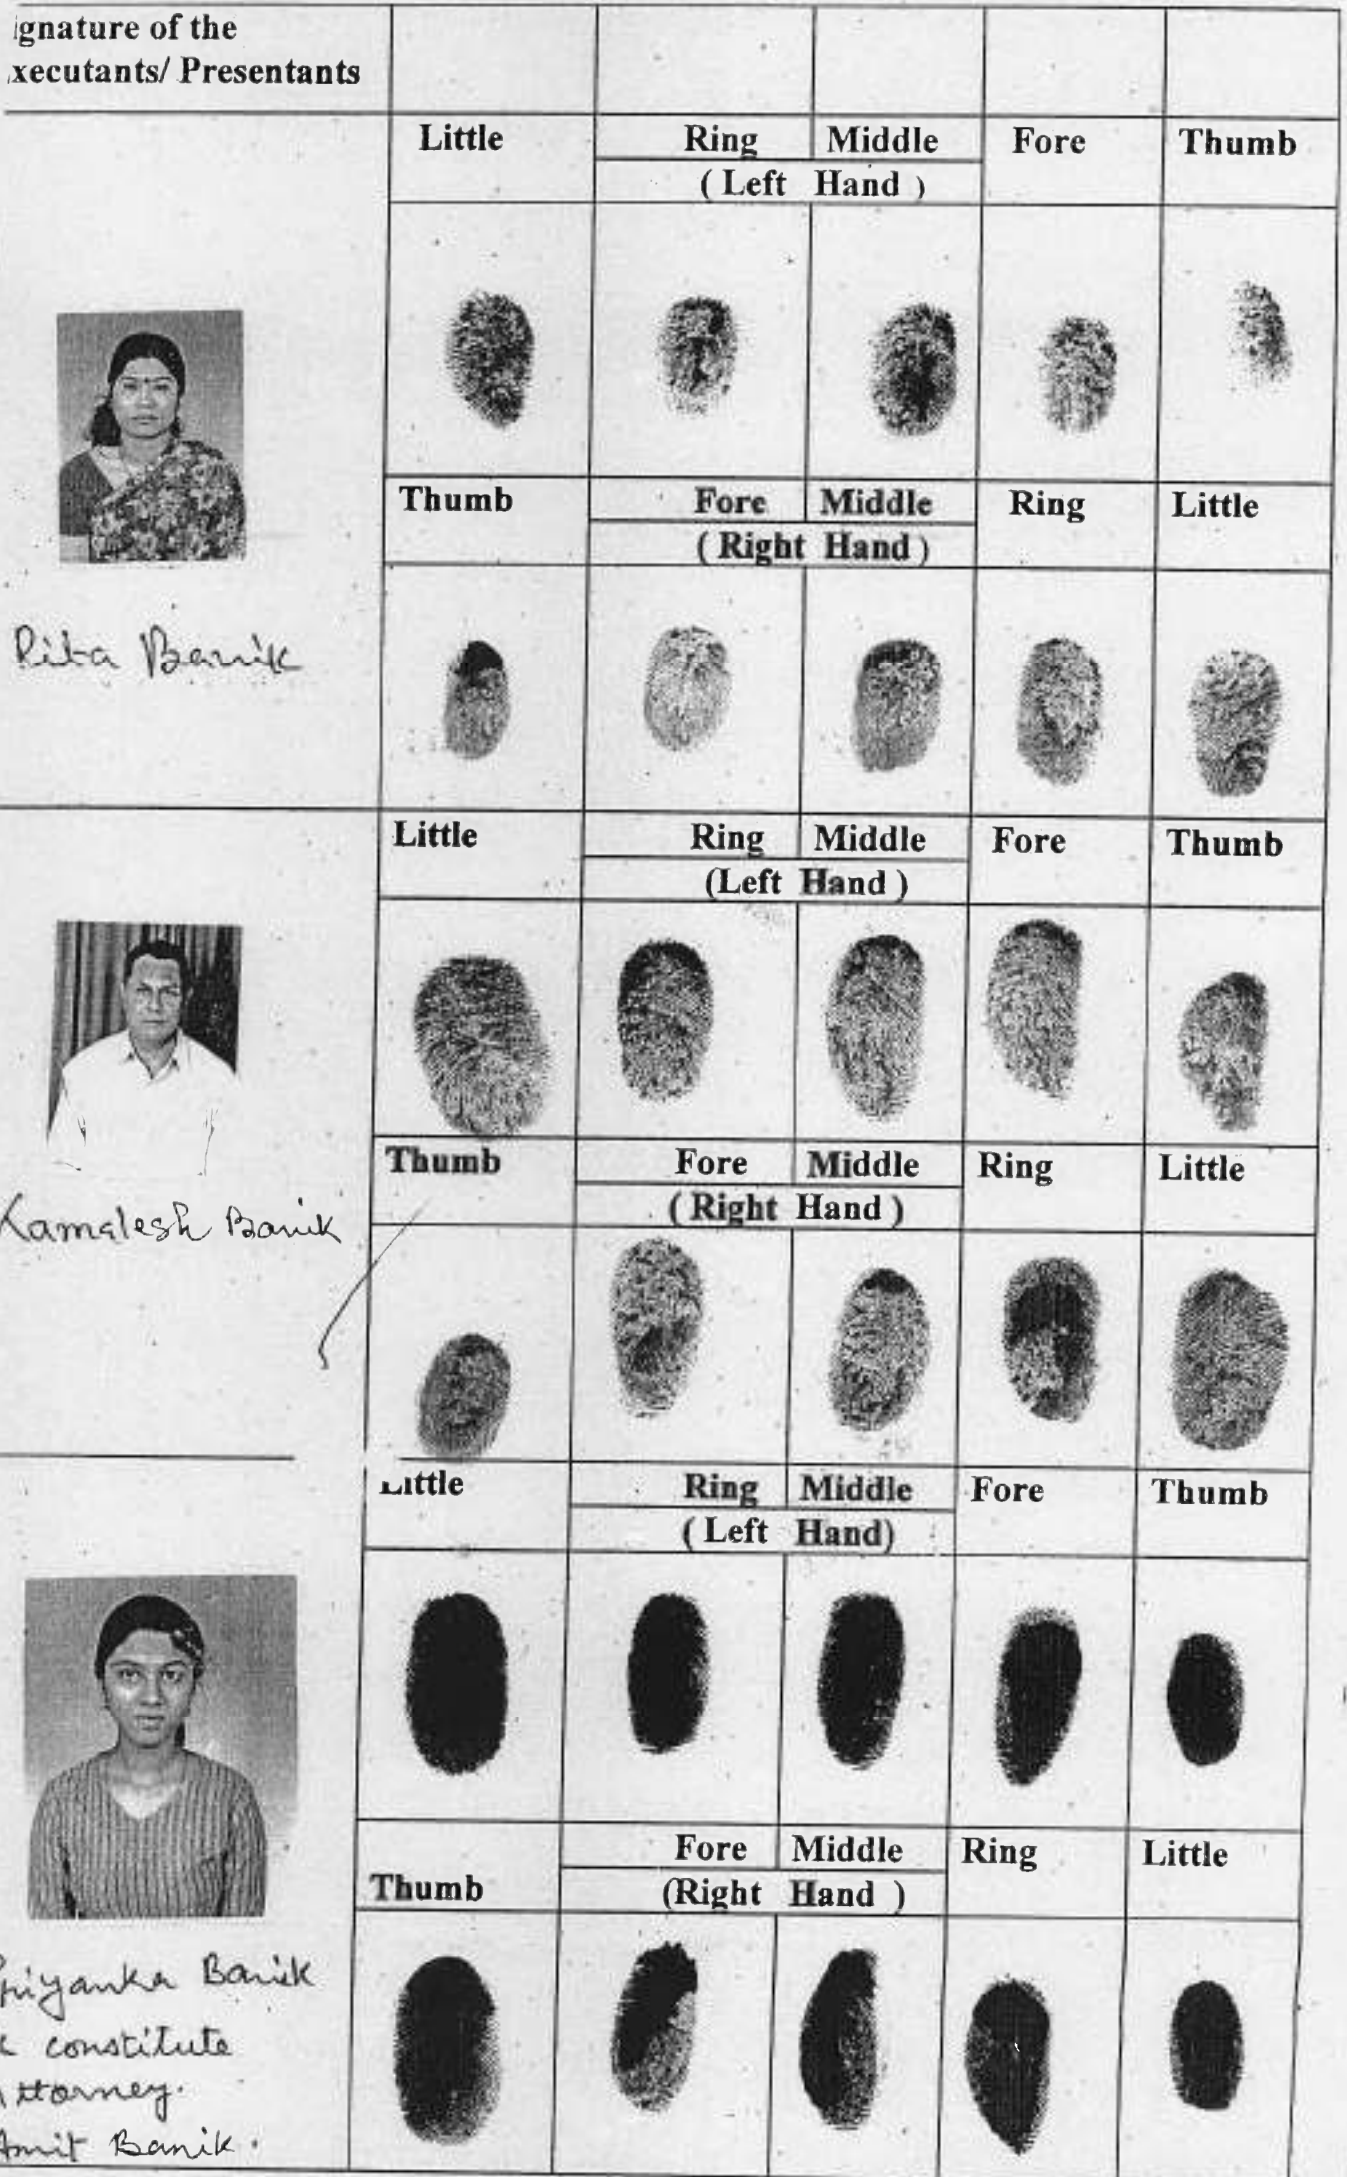 ignature of the
xecutants/ Presentants
Little Ring Middle Fore Thumb
( Left Hand )
Thumb Fore Middle Ring Little
( Right Hand )
Rita Banik
Little Ring Middle Fore Thumb
(Left Hand )
Thumb Fore Middle Ring Little
( Right Hand )
Kamalesh Banik
Little Ring Middle Fore Thumb
( Left Hand)
Fore Middle Ring Little
Thumb (Right Hand )
Priyanka Banik
constitute
ttorney.
Amit Banik.